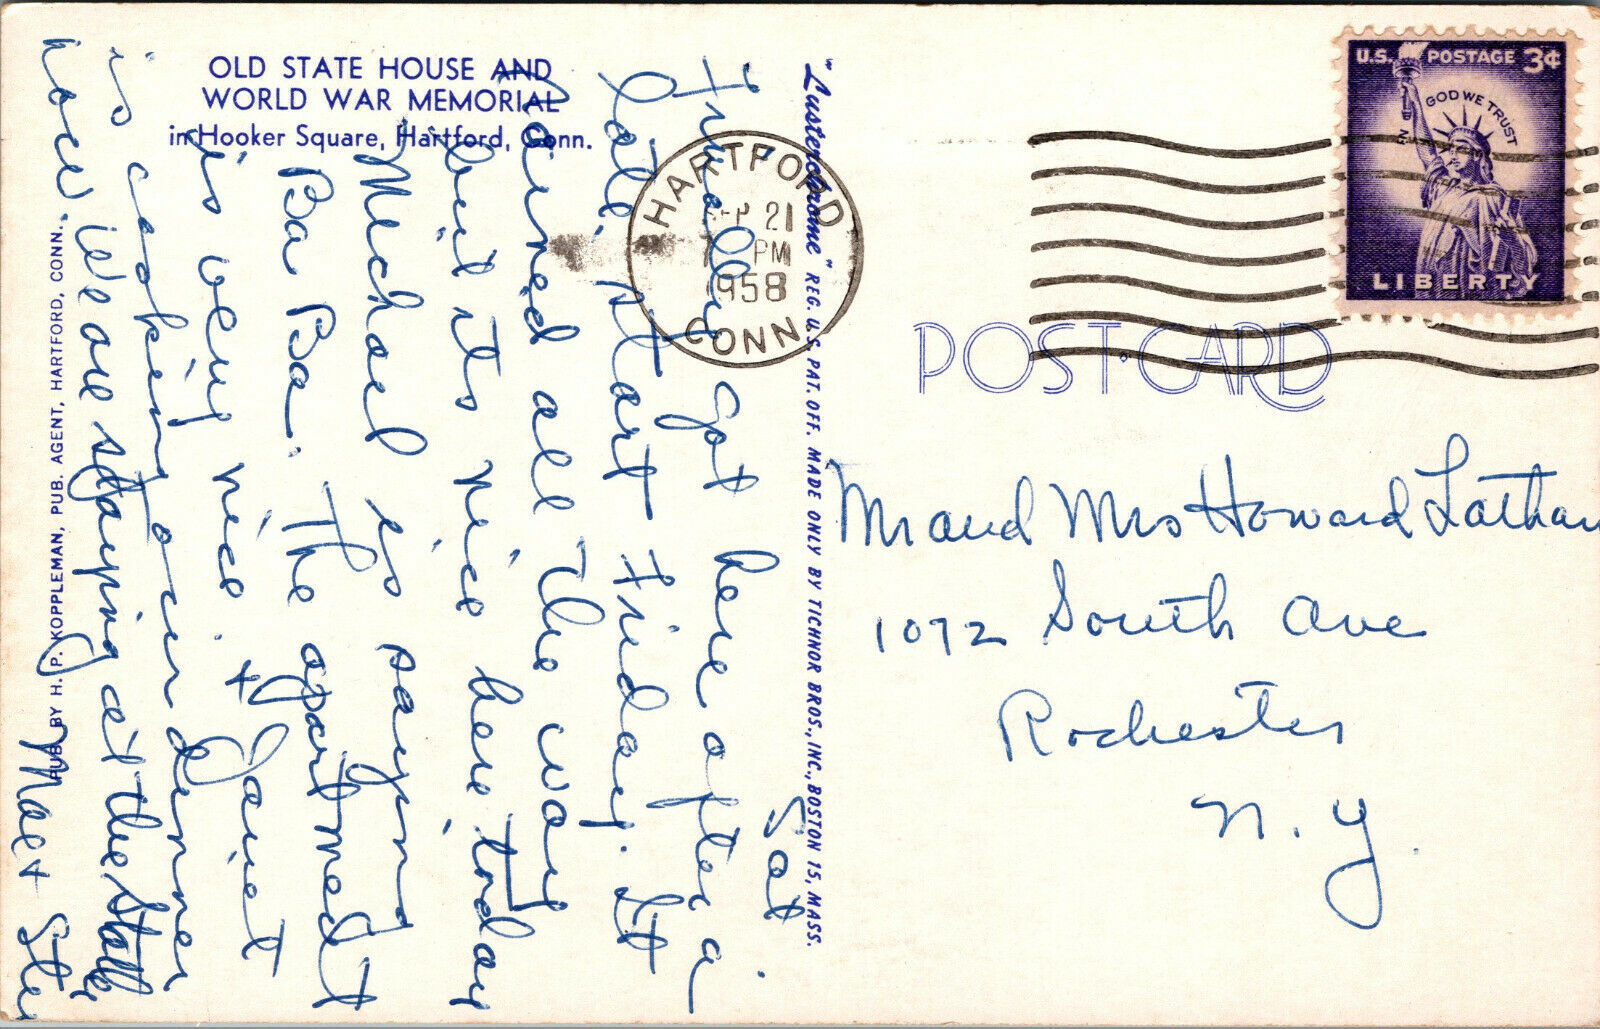 OLD STATE HOUSE AND
WORLD WAR MEMORIAL
in Hooker Square, Hartford, Conn.
Sat.
Finally got here after a
late start Friday. It
rained all the way
but its nice here today
Michael is saying
Ba Ba. The apartment
is very nice. + Janet
is cooking our dinner
now. We are staying at the Statler
Mae +
PUB. BY H. P. KOPPLEMAN, PUB. AGENT, HARTFORD, CONN.
"Lusterchrome" REG. U. S. PAT. OFF. MADE ONLY BY TICHNOR BROS., INC., BOSTON 15, MASS.
HARTFORD
21
PM
1958
CONN
U.S. POSTAGE 3¢
IN GOD WE TRUST
LIBERTY
POST CARD
Mr and Mrs Howard Lathan
1072 South Ave
Rochester
N. Y.